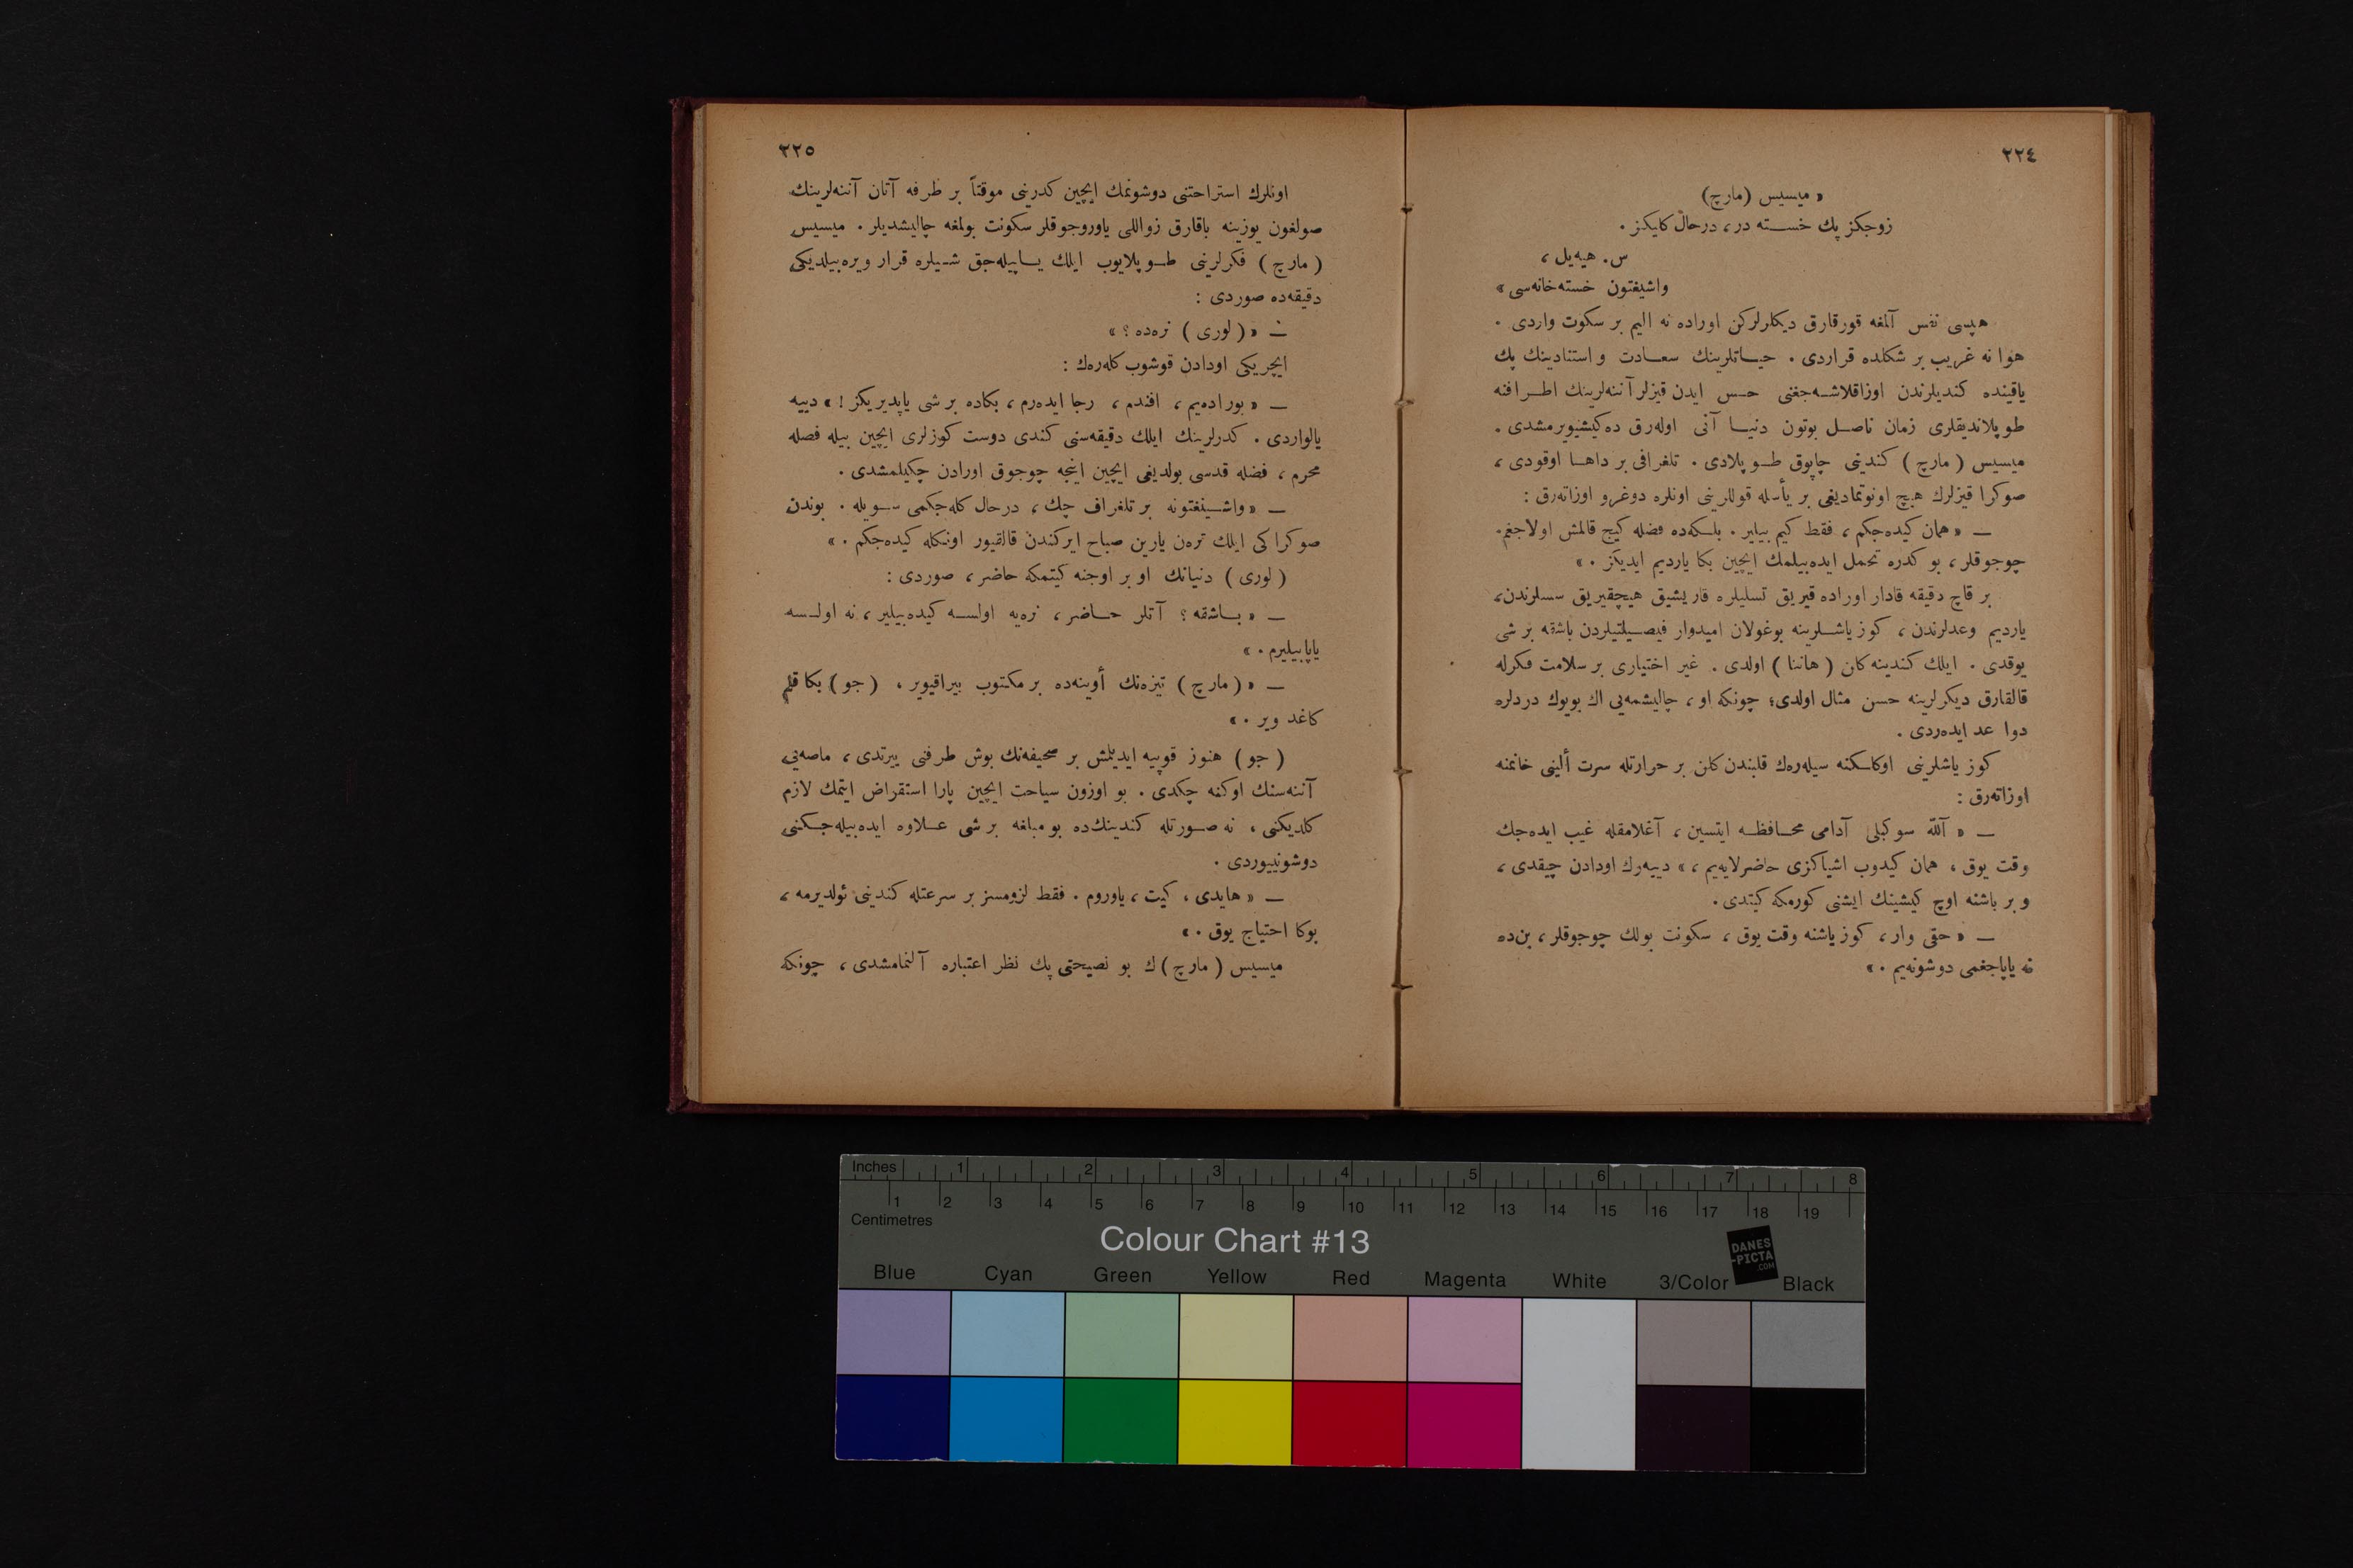 ٢٢٤
« ميسيس (مارچ)
زوجكز پك خسته در، درحال كليكز .
س. هیه‌يل ،
واشيغتون خسته‌خانه‌سى »
هپسى نفس آلمغه قورقارق ديكلرلركن اوراده نه اليم بر سكوت واردى .
هوا نه غريب بر شكلده قراردى . حياتلرينك سعادت و استنادينك پك
ياقينده كنديلرندن اوزاقلاشه‌جغنى حس ايدن قيزلر آننه‌لرينك اطرافنه
طوپلانديقلرى زمان ناصل بوتون دنيا آنى اوله‌رق ده‌كيشيويرمشدى .
ميسيس (مارچ) كندينى چاپوق طوپلادى . تلغرافى بر داها اوقودى ،
صوكرا قيزلرك هيچ اونوتماديغى بر يأسله قوللرينى اونلره دوغرو اوزاته‌رق :
— « همان كيده‌جكم ، فقط كيم بيلير . بلكه‌ده فضله كيج قالمش اولاجغم.
چوجوقلر ، بو كدره تحمل ايده‌بيلمك ايچين بكا يارديم ايديكز . »
بر قاچ دقيقه قادار اوراده قيريق تسليلره قاريشيق هيچقيريق سسلرندن،
يارديم وعدلرندن ، كوز ياشلرينه بوغولان اميدوار فيصيلتيلردن باشقه بر شى
يوقدى . ايلك كندينه كلن (هاننا) اولدى . غير اختيارى بر سلامت فكرله
قالقارق ديكرلرينه حسن مثال اولدى؛ چونكه او ، چاليشمه‌يى اك بويوك دردلره
دوا عد ايده‌ردى .
كوز ياشلرينى اوكلكنه سيله‌رەك قلبندن كلن بر حرارتله سرت ألينى خانمنه
اوزاته‌رق :
— « آللّه سوكيلى آدامى محافظه ايتسين ، آغلامقله غيب ايده‌جك
وقت يوق ، همان كيدوب اشياكزى حاضرلايه‌يم ، » دييه‌رك اودادن چيقدى ،
و بر باشنه اوچ كيشينك ايشنى كورمكه كيتدى.
— « حقى وار ، كوز ياشنه وقت يوق ، سكونت بولك چوجوقلر ، بن‌ده
نه ياپاجغمى دوشونه‌يم . »
٢٢٥
اونلرك استراحتنى دوشونمك ايچين كدرينى موقتاً بر طرفه آتان آننه‌لرينك
صولغون يوزينه باقارق زواللى ياوروجوقلر سكونت بولمغه چاليشديلر . ميسيس
(مارچ) فكرلرينى طوپلايوب ايلك ياپيله‌جق شيلره قرار ويره‌بيلديكى
دقيقه‌ده صوردى :
— « (لورى) نره‌ده ؟ »
ايچريكى اودادن قوشوب كله‌رەك :
— « بوراده‌يم ، افندم ، رجا ايده‌رم ، بكاده بر شى ياپديريكز ! » دييه
يالواردى . كدرلرينك ايلك دقيقه‌سنى كندى دوست كوزلرى ايچين بيله فضله
محرم ، فضله قدسى بولديغى ايچين اينجه چوجوق اورادن چكيلمشدى .
— « واشينغتونه بر تلغراف چك ، درحال كله‌جكمى سويله . بوندن
صوكراكى ايلك تره‌ن يارين صباح ايركندن قالقيور اونكله كيده‌جكم . »
(لورى) دنيانك او بر اوجنه كيتمكه حاضر ، صوردى :
— « باشقه ؟ آتلر حاضر ، نره‌يه اولسه كيده‌بيلير ، نه اولسه
ياپابيليرم . »
— « (مارچ) تيزه‌نك أوينه‌ده بر مكتوب بيراقيوير ، (جو) بكا قلم
كاغد وير . »
(جو) هنوز قوپيه ايديلمش بر صحيفه‌نك بوش طرفنى ييرتدى ، ماصه‌يى
آننه‌سنك اوكنه چكدى . بو اوزون سياحت ايچين پارا استقراض ايتمك لازم
كلديكنى ، نه صورتله كندينك‌ده بو مبلغه بر شى علاوه ايده‌بيله‌جكنى
دوشونييوردى .
— « هايدى ، كيت ، ياوروم . فقط لزومسز بر سرعتله كندينى ئولديرمه ،
بوكا احتياج يوق . »
ميسيس (مارچ)ك بو نصيحتى پك نظر اعتباره آلنمامشدى ، چونكه
Inches 1 2 3 4 5 6 7 8
1 2 3 4 5 6 7 8 9 10 11 12 13 14 15 16 17 18 19
Centimetres
Colour Chart #13
DANES
-PICTA
.COM
Blue Cyan Green Yellow Red Magenta White 3/Color Black